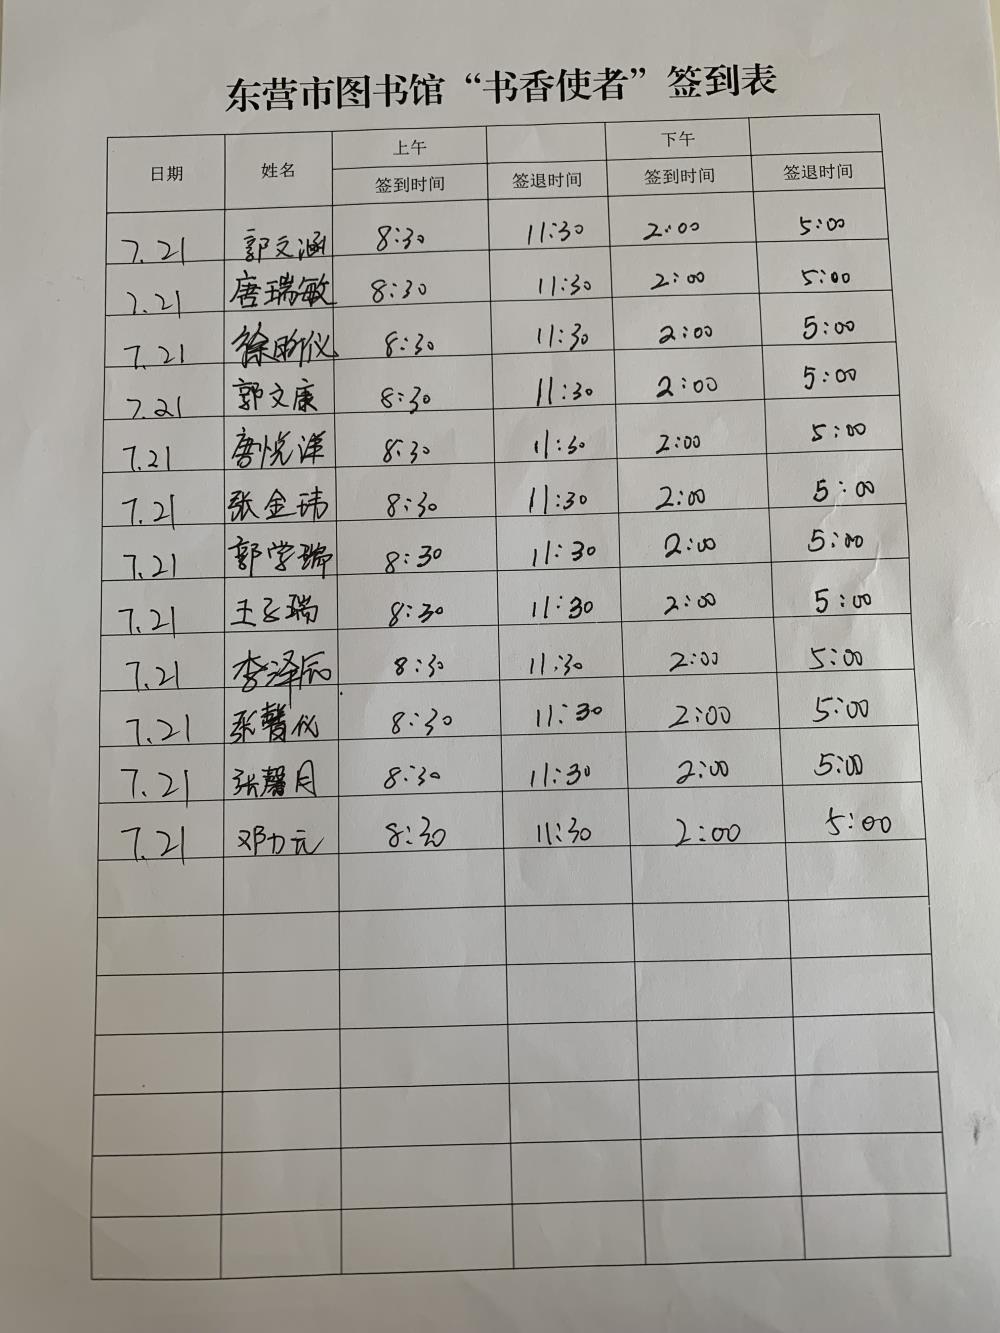 东营市图书馆“书香使者”签到表
日期 姓名 上午 下午
签到时间 签退时间 签到时间 签退时间
7.21 郭文涵 8:30 11:30 2:00 5:00
7.21 唐瑞敏 8:30 11:30 2:00 5:00
7.21 徐昕仪 8:30 11:30 2:00 5:00
7.21 郭文康 8:30 11:30 2:00 5:00
7.21 唐悦洋 8:30 11:30 2:00 5:00
7.21 张金玮 8:30 11:30 2:00 5:00
7.21 郭学瑞 8:30 11:30 2:00 5:00
7.21 王子瑞 8:30 11:30 2:00 5:00
7.21 李泽辰 8:30 11:30 2:00 5:00
7.21 张馨仪 8:30 11:30 2:00 5:00
7.21 张馨月 8:30 11:30 2:00 5:00
7.21 邓力元 8:30 11:30 2:00 5:00